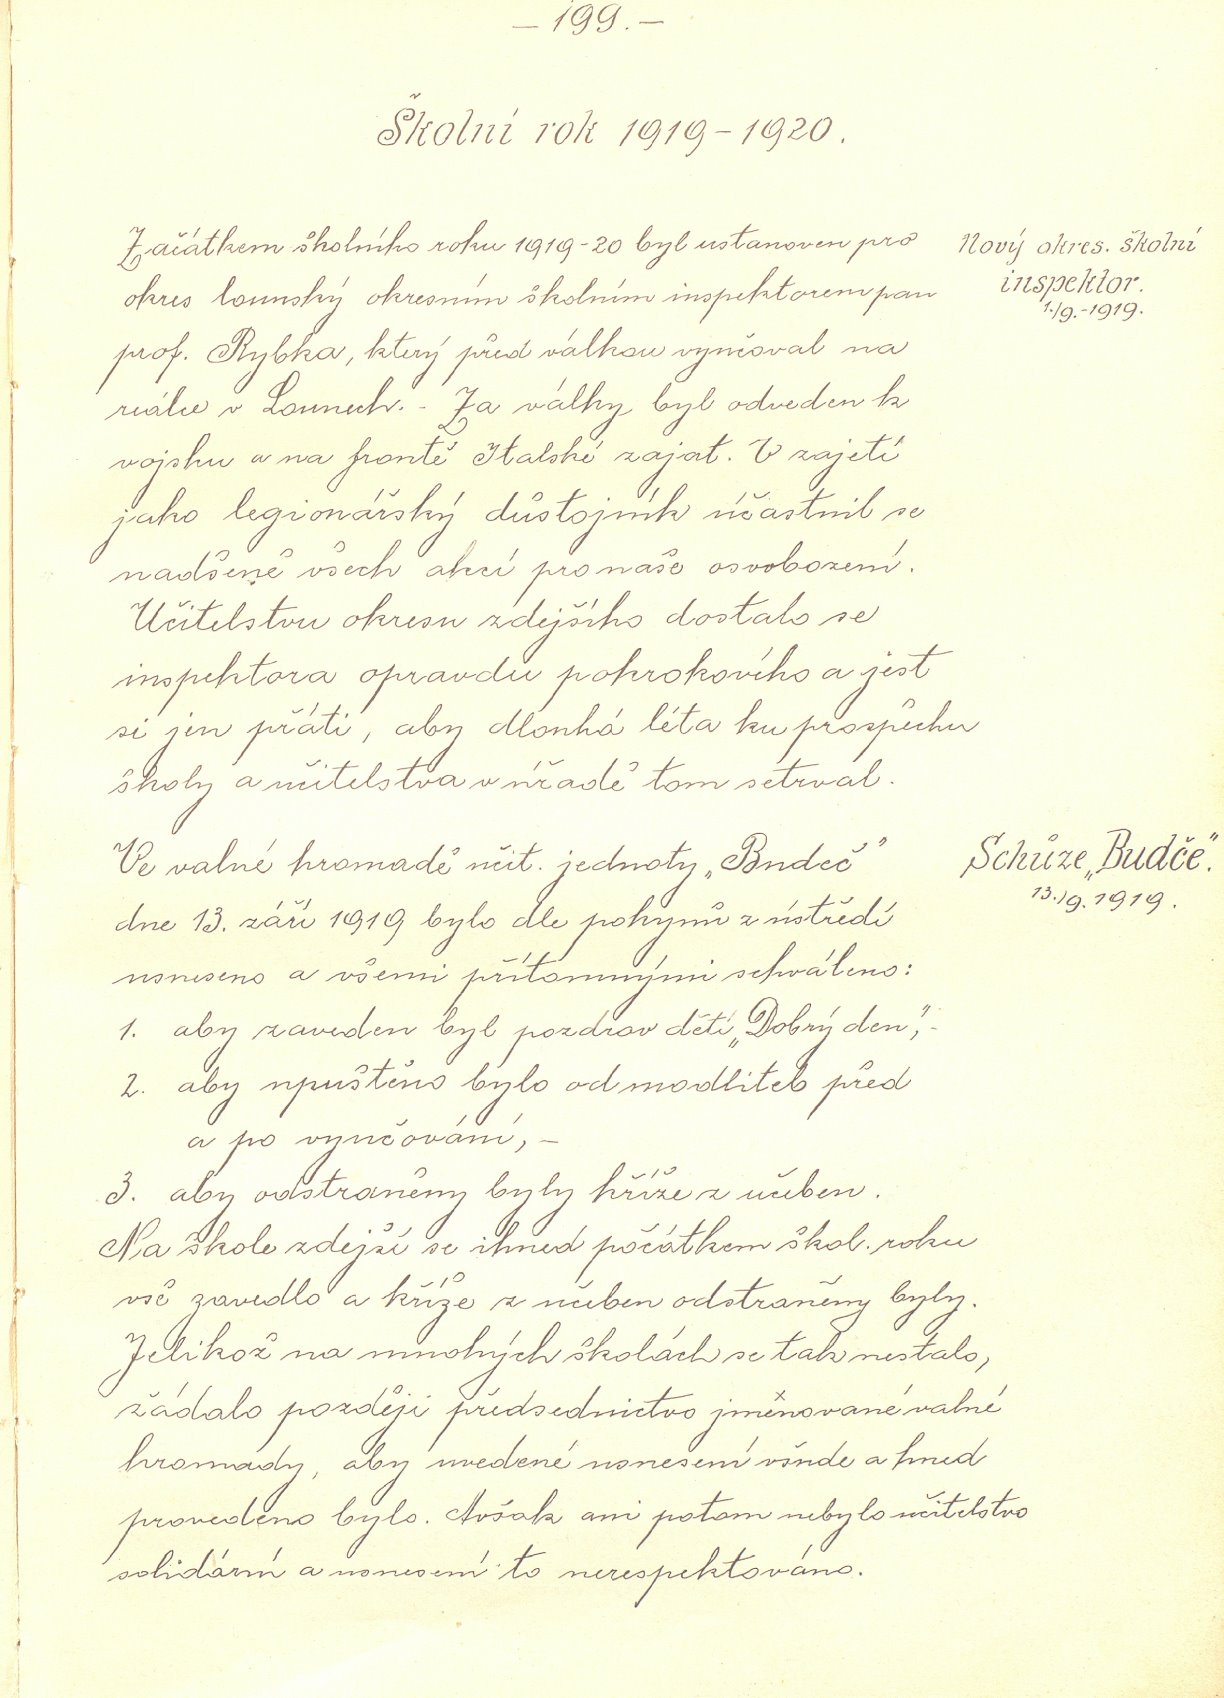 — 199. —
Školní rok 1919 – 1920.
Začátkem školního roku 1919-20 byl ustanoven pro
okres lounský okresním školním inspektorem pan
prof. Rybka, který před válkou vyučoval na
reálce v Lounech. - Za války byl odveden k
vojsku a na frontě Italské zajat. V zajetí
jako legionářský důstojník účastnil se
nadšeně všech akcí pro naše osvobození.
Učitelstvu okresu zdejšího dostalo se
inspektora opravdu pokrokového a jest
si jen přáti, aby dlouhá léta ku prospěchu
školy a učitelstva v úřadě tom setrval.
Nový okres. školní
inspektor.
1./9.-1919.
Ve valné hromadě učit. jednoty „Budeč"
dne 13. září 1919 bylo dle pokynů z ústředí
usneseno a všemi přítomnými schváleno:
1. aby zaveden byl pozdrav dětí „Dobrý den", -
2. aby upuštěno bylo od modliteb před
a po vyučování, –
3. aby odstraněny byly kříže z učeben.
Na škole zdejší se ihned počátkem škol. roku
vše zavedlo a kříže z učeben odstraněny byly.
Jelikož na mnohých školách se tak nestalo,
žádalo později předsednictvo jměnované valné
hromady, aby uvedené usnesení všude a hned
provedeno bylo. Avšak ani potom nebylo učitelstvo
solidární a usnesení to nerespektováno.
Schůze „Budče".
13./9. 1919.